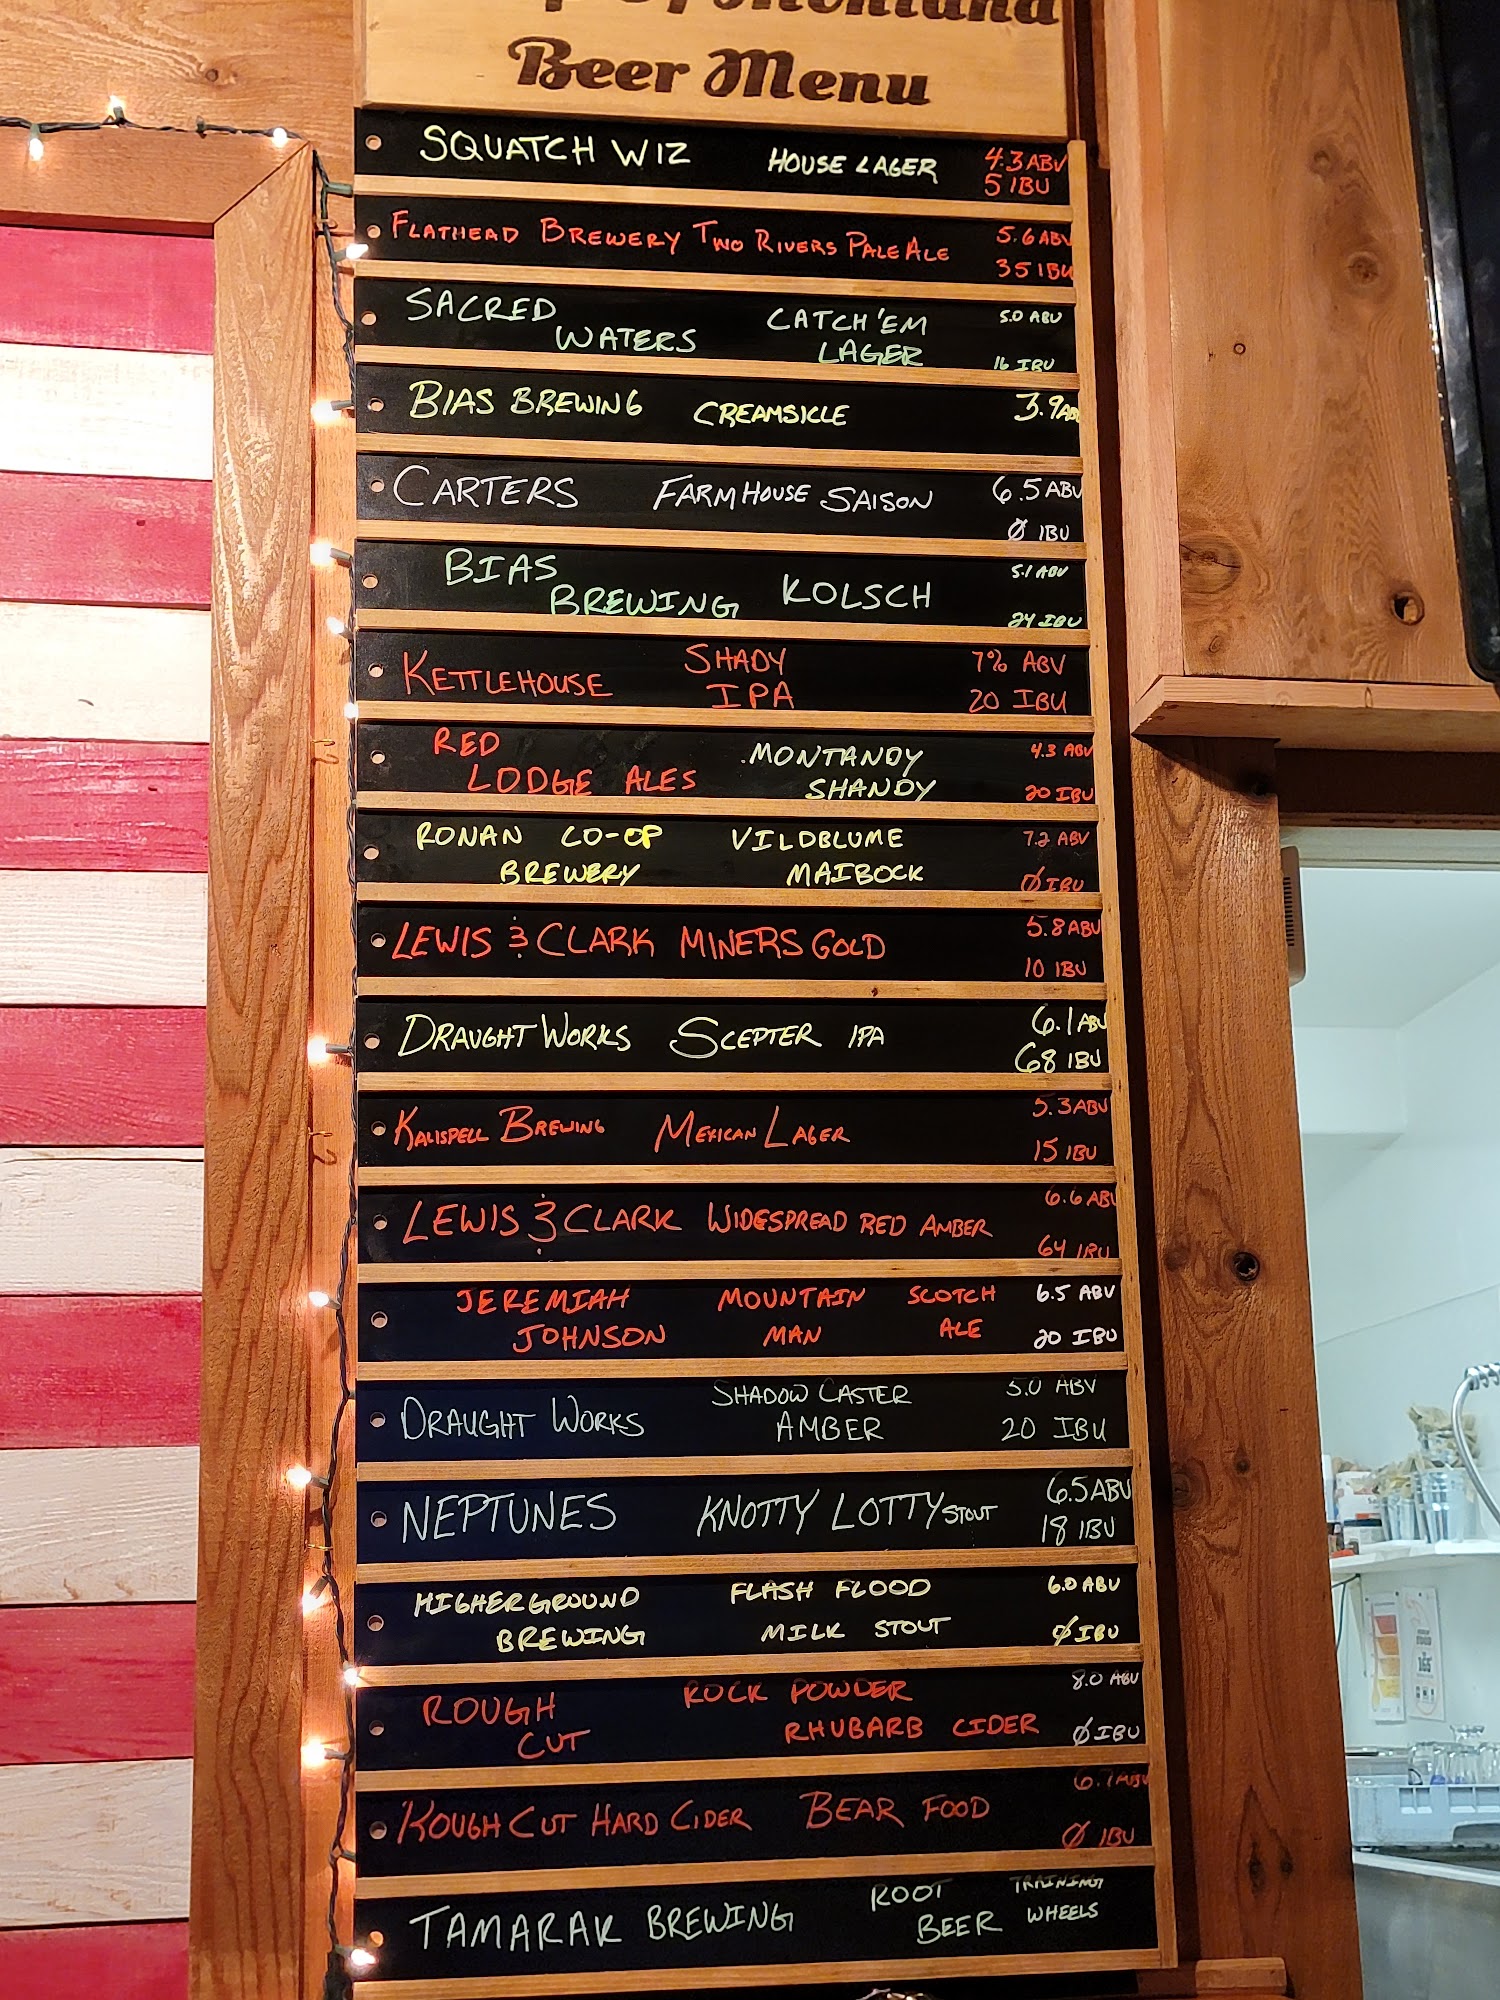 Beer Menu
SQUATCH WIZ HOUSE LAGER 4.3 ABV
5 IBU
FLATHEAD BREWERY TWO RIVERS PALE ALE 5.6 ABV
35 IBU
SACRED CATCH'EM 5.0 ABV
WATERS LAGER 16 IBU
BIAS BREWING CREAMSICLE 3.9 ABV
CARTERS FARMHOUSE SAISON 6.5 ABV
Ø IBU
BIAS KOLSCH 5.1 ABV
BREWING 24 IBU
KETTLEHOUSE SHADY 7% ABV
IPA 20 IBU
RED MONTANDY 4.3 ABV
LODGE ALES SHANDY 20 IBU
RONAN CO-OP VILDBLUME 7.2 ABV
BREWERY MAIBOCK Ø IBU
LEWIS & CLARK MINERS GOLD 5.8 ABV
10 IBU
DRAUGHT WORKS SCEPTER IPA 6.1 ABV
68 IBU
KALISPELL BREWING MEXICAN LAGER 5.3 ABV
15 IBU
LEWIS & CLARK WIDESPREAD RED AMBER 6.6 ABV
64 IBU
JEREMIAH MOUNTAIN SCOTCH 6.5 ABV
JOHNSON MAN ALE 20 IBU
DRAUGHT WORKS SHADOW CASTER 5.0 ABV
AMBER 20 IBU
NEPTUNES KNOTTY LOTTY STOUT 6.5 ABV
18 IBU
HIGHERGROUND FLASH FLOOD 6.0 ABV
BREWING MILK STOUT Ø IBU
ROUGH ROCK POWDER 8.0 ABV
CUT RHUBARB CIDER Ø IBU
ROUGH CUT HARD CIDER BEAR FOOD 6.7 ABV
Ø IBU
TAMARAK BREWING ROOT TRAINING
BEER WHEELS